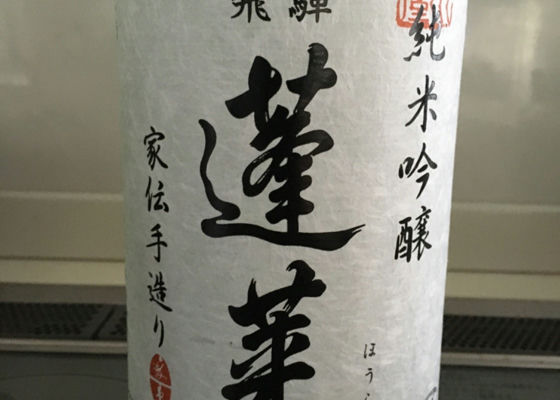 飛騨
純米吟醸
蓬莱
ほうら
家伝手造り